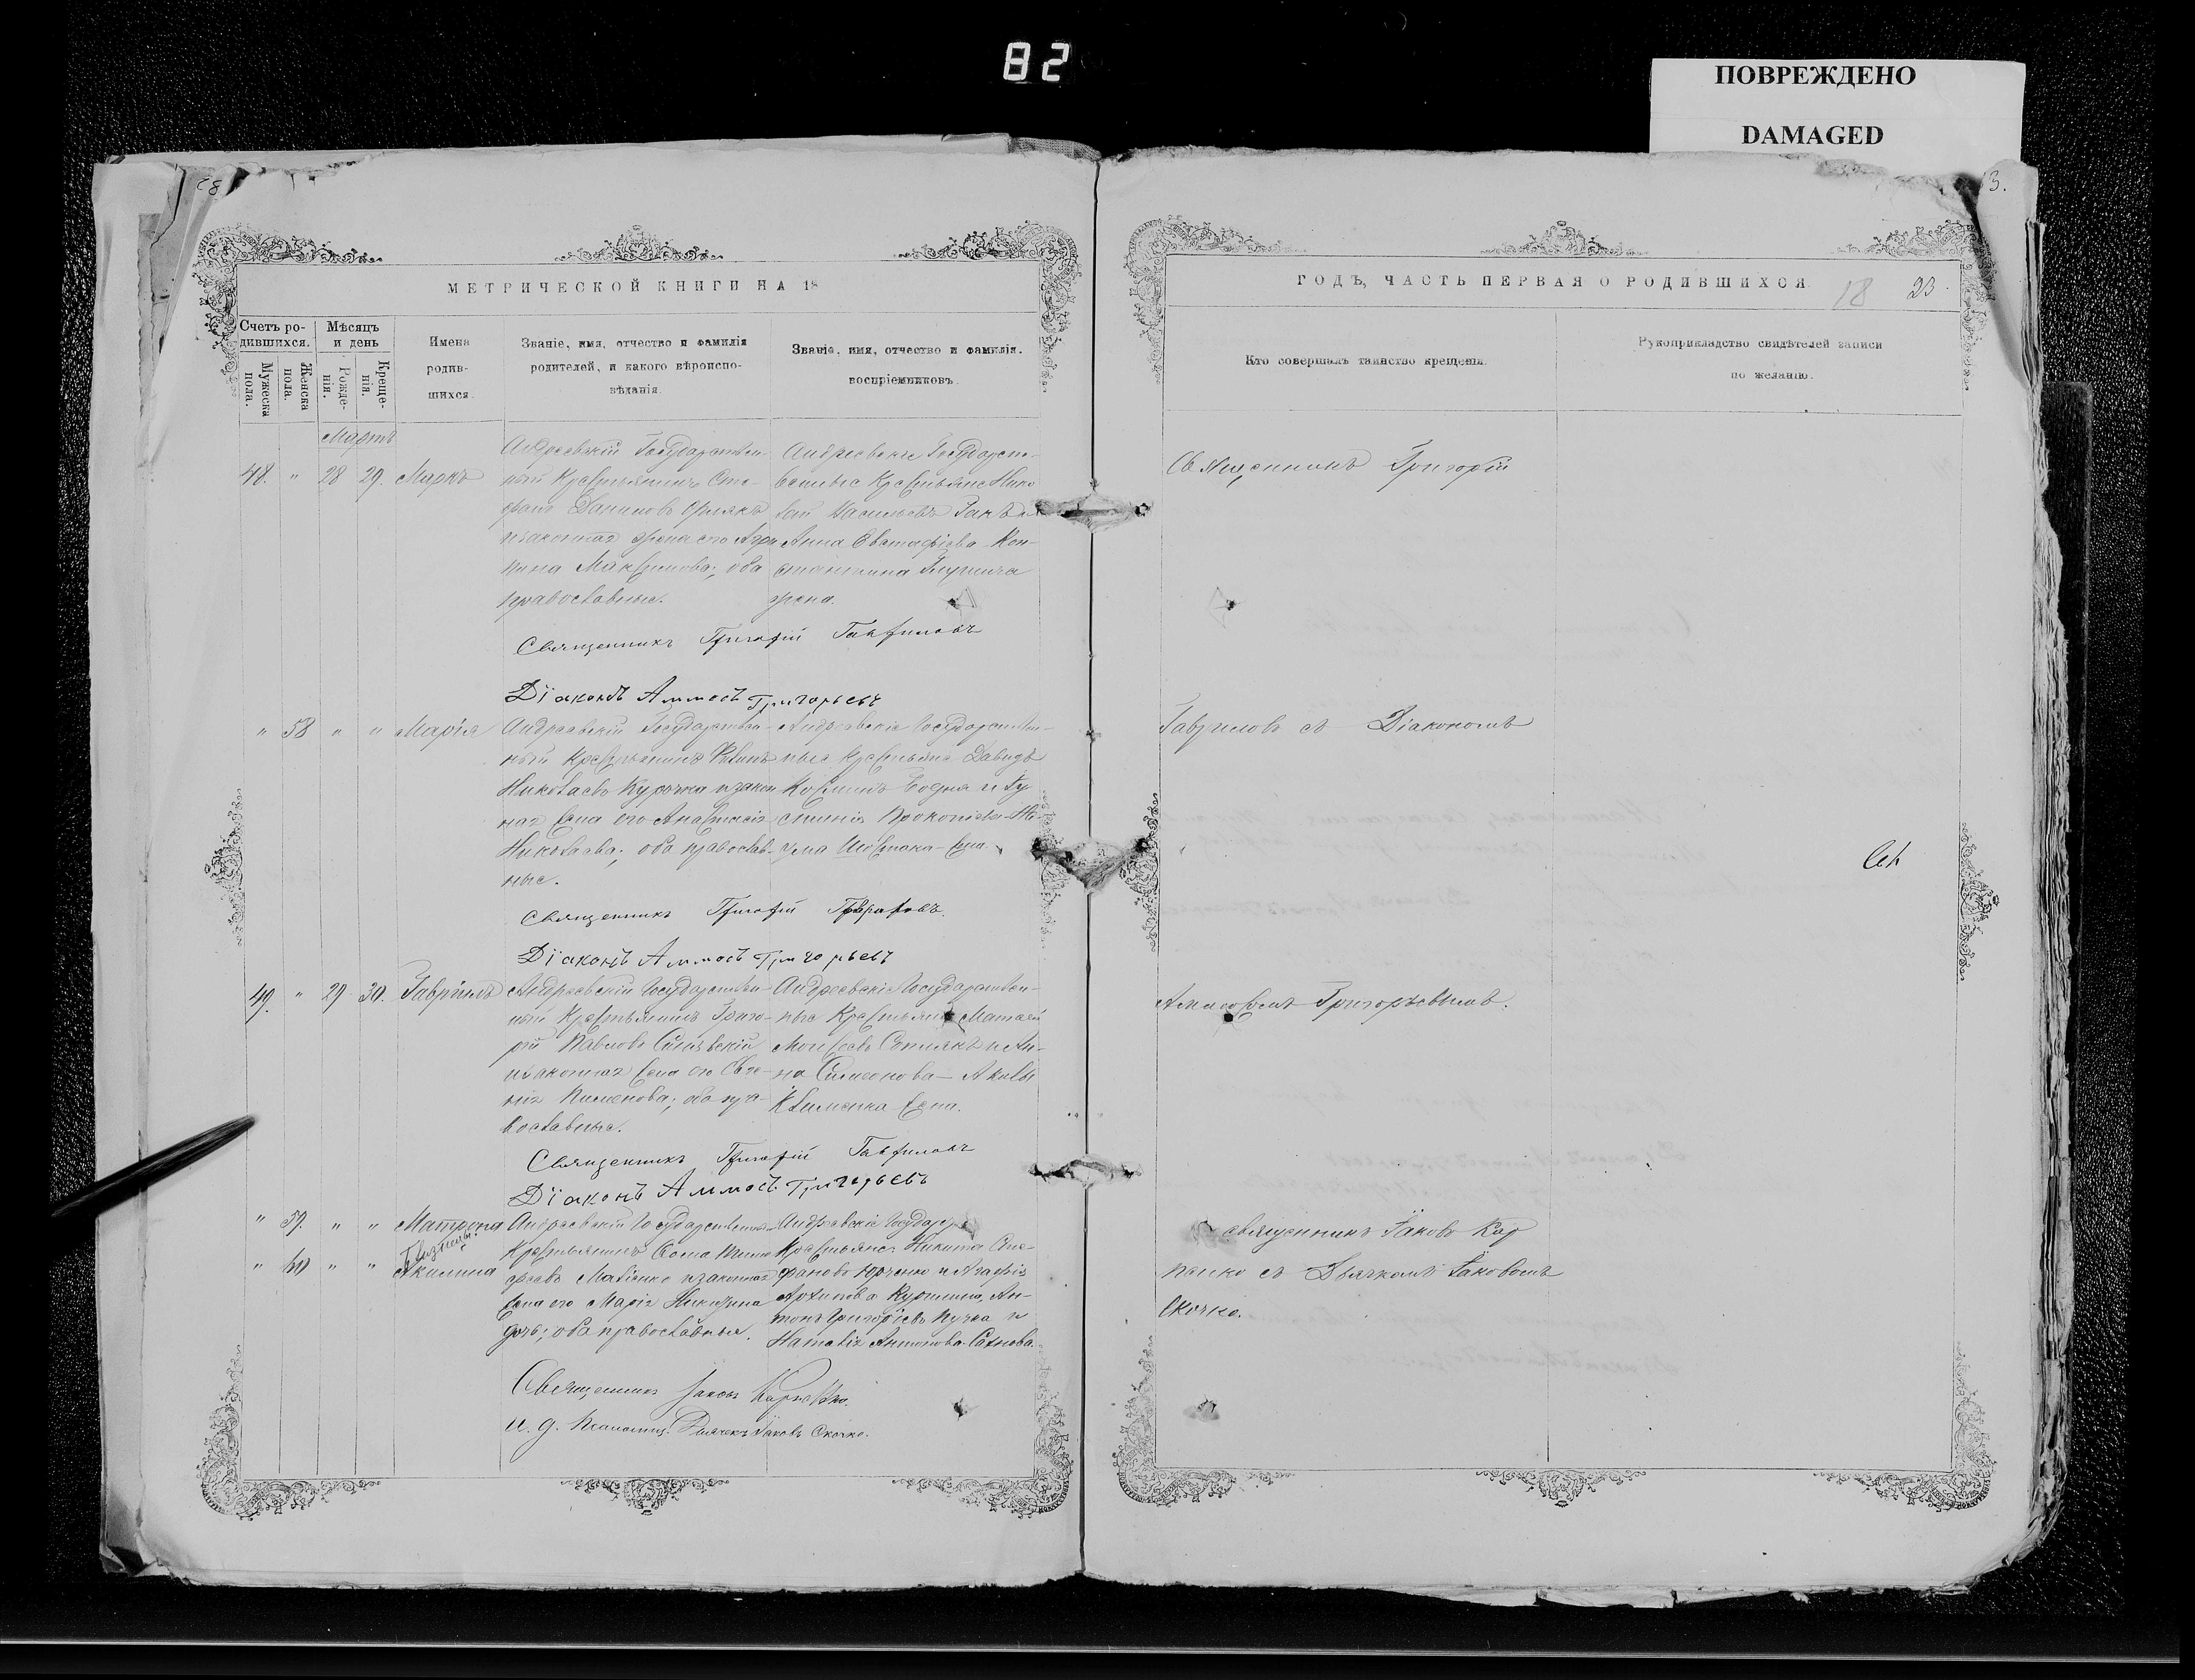 82
ПОВРЕЖДЕНО
DAMAGED
3.
МЕТРИЧЕСКОЙ КНИГИ НА 18
Счетъ ро-
дившихся.
Мѣсяцъ
и день
Мужеска
пола.
Женска
пола.
Рожде-
нія.
Креще-
нія.
Имена
родив-
шихся.
Званіе, имя, отчество и фамилія
родителей, и какого вѣроиспо-
вѣданія.
Званіе, имя, отчество и фамилія.
воспріемниковъ.
Мартъ
48. " 28 29. Маркъ
Андреевскій Государствен-
ный Крестьянинъ Сте-
фанъ Даниловъ
и законная жена его Агри
пина Максимова; оба
православные.
Андреевскіе Государст-
венные Крестьяне Нико
лай Васильевъ и
Анна Евстафіева Кон-
стантина
жена.
Священникъ Григорій Гавриловъ
Діаконъ Аммосъ Григорьевъ
" 58 " " Марія
Андреевскій Государствен-
ный Крестьянинъ
Николаевъ Курочка и закон
ная жена его Анастасія
Николаева; оба православ-
ные.
Андреевскіе Государствен-
ные Крестьяне Давидъ
Косминъ и Іу
стинія Прокопіева
жена.
Священникъ Григорій Гавриловъ.
Діаконъ Аммосъ Григорьевъ
49. " 29 30. Гавріилъ
Андреевскій Государствен-
ный Крестьянинъ Григо-
рій Павловъ Синявскій
и законная жена его Евге-
нія Пименова; оба пра-
вославные.
Андреевскіе Государствен-
ные Крестьяне Матвей
Моисеевъ и Ан-
на Симеонова
Клименка жена.
Священникъ Григорій Гавриловъ
Діаконъ Аммосъ Григорьевъ
" 59. " " Матрона
Близнецы.
" 60 " " Акилина
Андреевскій Государственный
Крестьянинъ Тимо
феевъ Матіенко и законная
жена его Марія Никитина
дочь; оба православныя.
Андреевскіе Государ
Крестьяне Никита Сте-
фановъ Юрченко и Агафія
Архипова Ан-
тонъ Григорьевъ Пучка и
Наталія Антонова
Священникъ Іаковъ Карпенко.
И. д. Псаломщ. Дьячекъ Іаковъ Скочко.
ГОДЪ, ЧАСТЬ ПЕРВАЯ О РОДИВШИХСЯ.
18
23.
Кто совершалъ таинство крещенія.
Рукоприкладство свидѣтелей записи
по желанію.
Священникъ Григорій
Гавриловъ съ Діакономъ
Аммосомъ Григорьевымъ.
священникъ Іаковъ Кар
пенко съ Дьячкомъ Іаковомъ
Скочко.